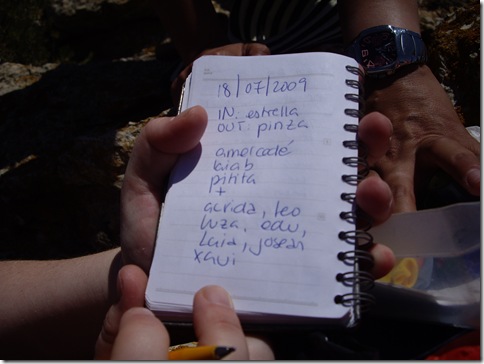 18/07/2009
IN: estrella
OUT: pinza
amorcadé
kiab
pitita
+
acrida, leo
luza, edu,
Laia, josean
xavi